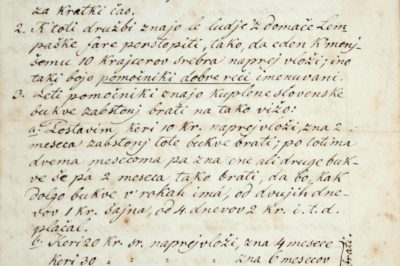 za kratki čas.
2. K toti družbi znajo le ludje z domače Lem
paške jare perstopiti, tako, da eden k'menj
šemu 10 krajcerov srebra naprej vloži; ino
taki bojo pomočniki dobre reči imenuvani.
3. Leti pomočniki znajo kuplene slovenske
bukve zabstonj brati na tako vižo:
a. Postavim, keri 10 kr. naprej vloži, zna 2
meseca zabstonj tote bukve brati; po totima
dvema mesecoma pa zna ene ali druge buk-
ve še pa 2 meseca tako brati, da bo, kak
dolgo bukve v rokah ima, od dvujih dne-
vov 1 kr. šajna, od 4. dnevov 2 kr. i. t. d.
plačal.
b. Keri 20 kr. sr. naprej vloži, zna 4 mesece
keri 30 " " " zna 6 mesecov
brati.